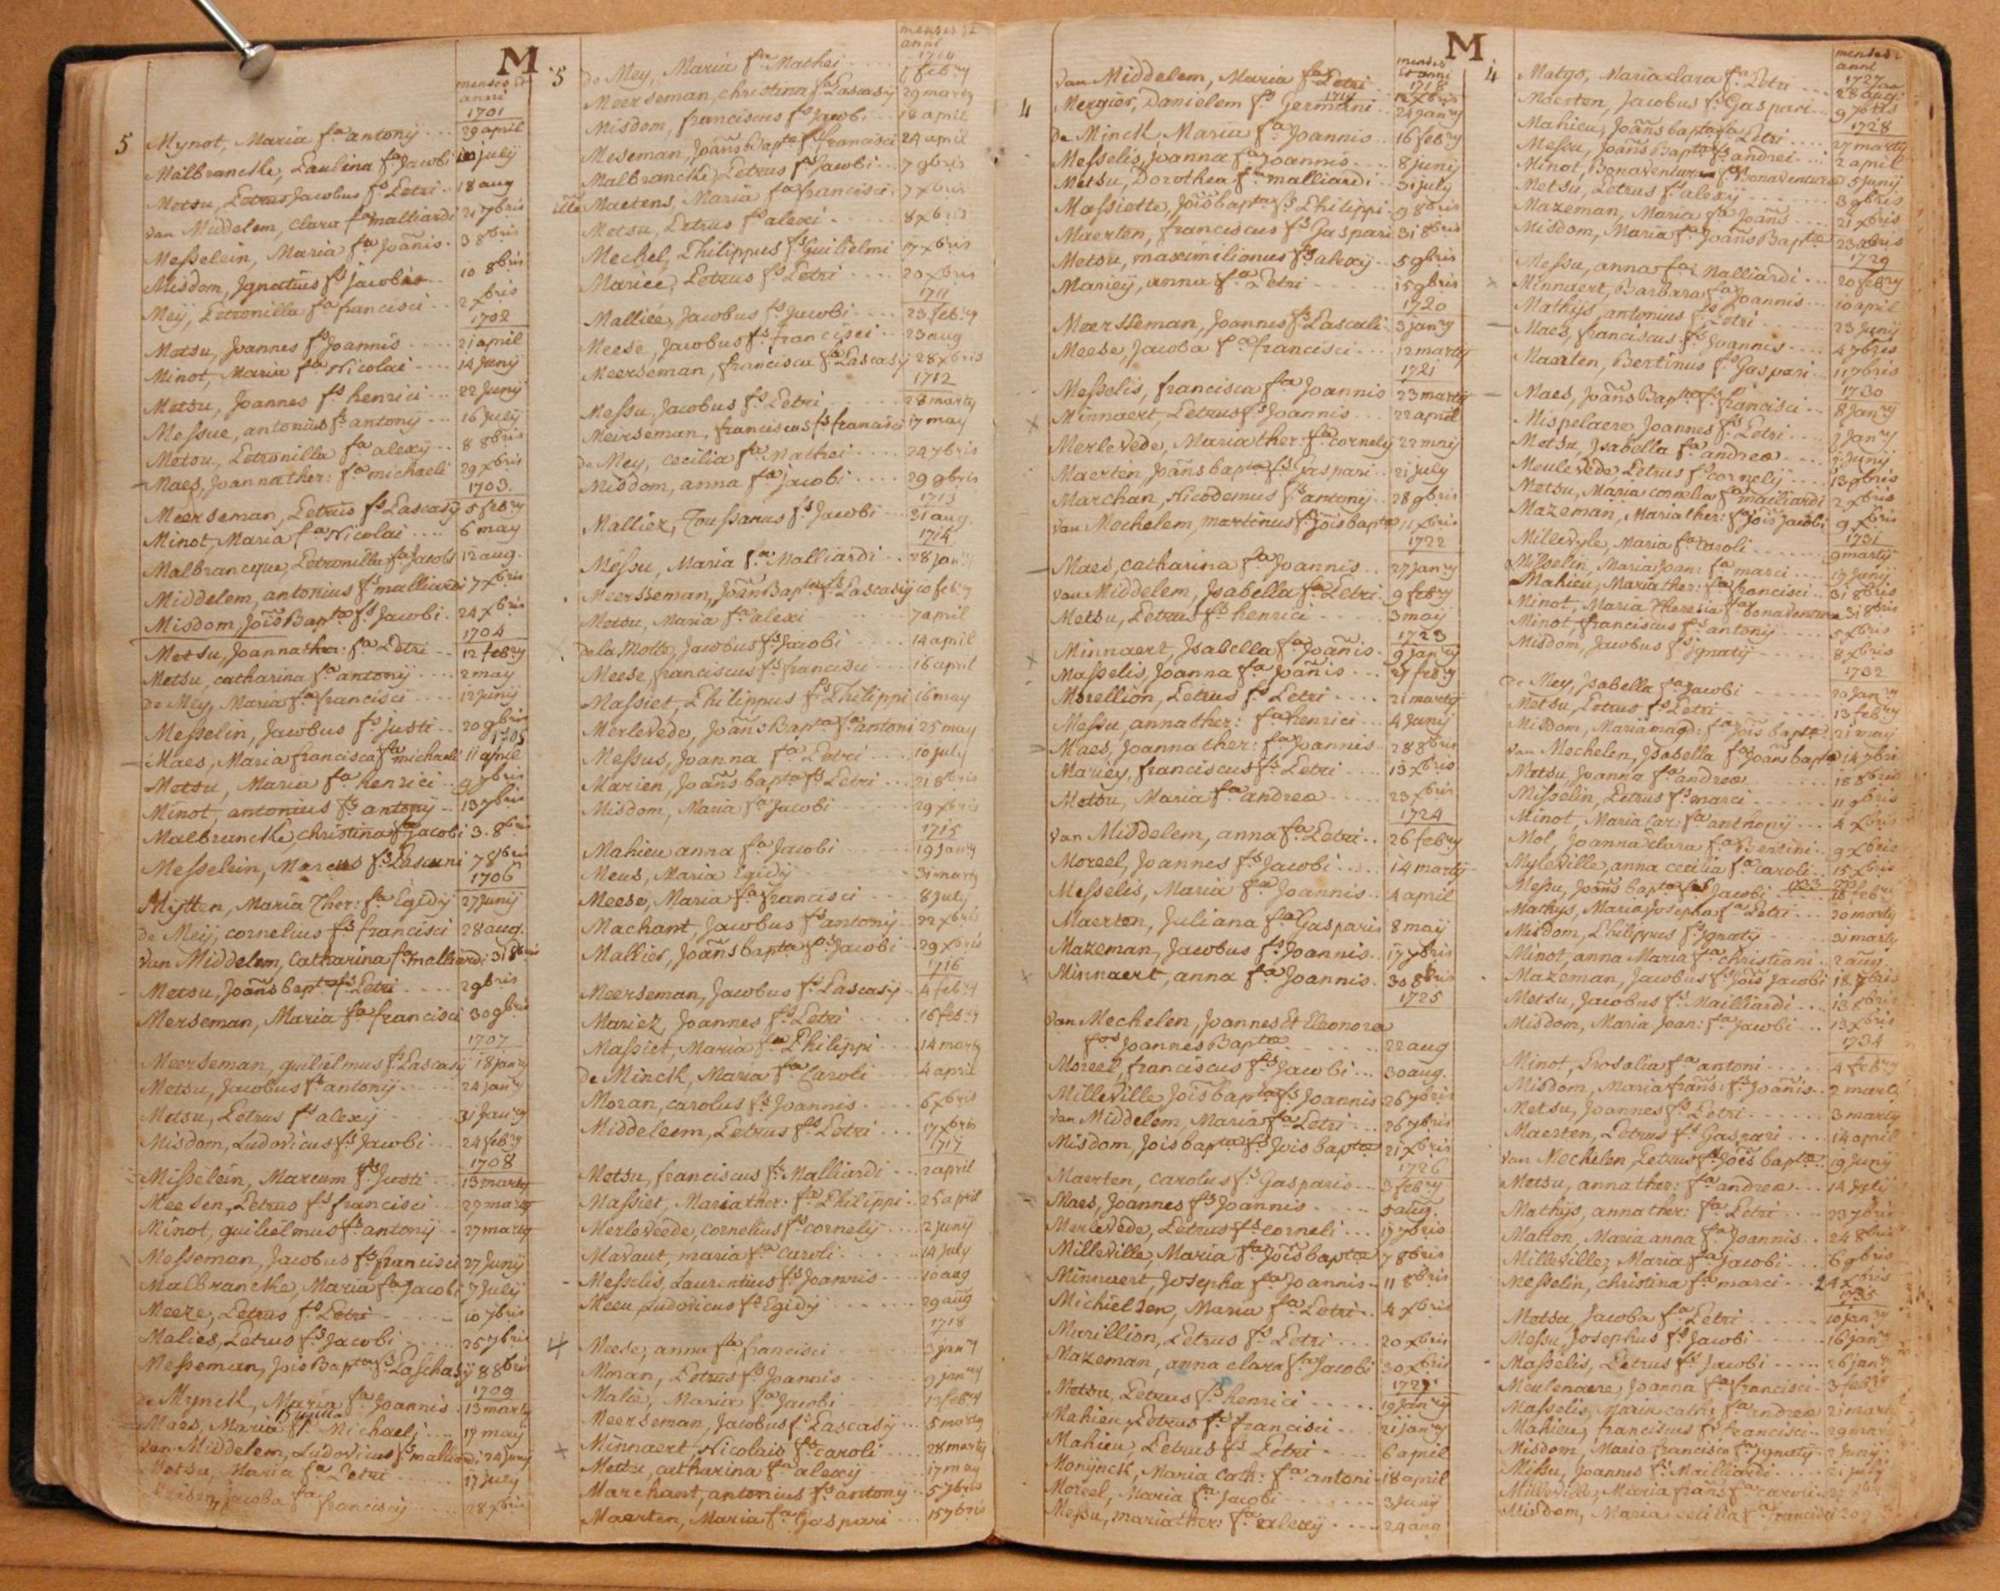 M
menses et
anni
1701
5 Mynot, Maria fa antonij 29 april
Malbrancke, Paulina fa Jacobi 10 july
Metsu, Petrus Jacobus fs Petri 18 aug
van Middelem, Clara fa malliardi 21 7bris
Messelein, Maria fa Joañis 3 8bris
Misdom, Ignatius fs Jacobi 10 8bris
Meij, Petronilla fa francisci 2 xbris
1702
Metsu, Joannes fs Joannis 21 april
Minot, Maria fa Nicolai 14 Junij
Metsu, Joannes fs henrici 22 Junij
Messue, antonius fs antonij 16 july
Metsu, Petronilla fa alexij 8 8bris
Maes, Joanna ther: fa michaeli 29 xbris
1703
Meerseman, Petrus fs Pascasij 5 febry
Minot, Maria fa Nicolai 6 may
Malbrancque, Petronilla fa Jacobi 12 aug.
Middelem, antonius fs malliardi 7 xbris
Misdom, Jois Bapta fs Jacobi 24 xbris
1704
Metsu, Joanna ther: fa Petri 12 febry
Metsu, catharina fa antonij 2 may
de Mey, Maria fa francisci 12 junij
Messelin, Jacobus fs Justi 20 9bris
1705
Maes, Maria francisca fa michaeli 11 april
Metsu, Maria fa henrici 9 7bris
Minot, antonius fs antony 13 7bris
Malbrancke christina fa Jacobi 3 8bris
Messelein, Marcus fs 7 8bris
1706
Mytten, Maria Ther: fa Egidij 27 junij
de Meij, cornelius fs francisci 28 aug.
van Middelem, Catharina fa malliardi 31 8bris
Metsu, Joañs bapta fs Petri 2 9bris
Merseman, Maria fa francisci 30 9bris
1707
Meerseman, guilielmus fs Pascasij 18 janry
Metsu, Jacobus fs antonij 24 janry
Metsu, Petrus fs alexij 31 Janry
Misdom, Ludovicus fs Jacobi 24 febry
1708
Misselein, Marcum fs Justi 13 marty
Meesen, Petrus fs francisci 29 marty
Minot, guilielmus fs antonij 27 marty
Messeman, Jacobus fs francisci 27 Junij
Malbrancke, Maria fa Jacobi 7 July
Meeze, Petrus fs Petri 10 7bris
Malies, Petrus fs Jacobi 25 7bris
Messeman, Jois Bapta fs Paschasij 8 8bris
1709
de Mynck, Maria fa Joannis 13 marty
Maes, Maria fa Michaeli 17 may
van Middelem, Ludovicus fs malliardi 24 junij
Metsu, Maria fa Petri 17 july
Jacoba fa francisci 28 xbris
5
menses et
anni
1710
de Mey, Maria fa Mathei febry
Meerseman, christina fa Pascasij 29 marty
Misdom, franciscus fs Jacobi 18 april
Meseman, Joañs Bapta fs francisci 24 april
Malbrancke, Petrus fs Jacobi 7 9bris
Maetens, Maria fa francisci 7 xbris
Metsu, Petrus fs alexi 8 xbris
Mechel, Philippus fs Guilielmi 17 xbris
Mariée, Petrus fs Petri 20 xbris
1711
Malliée, Jacobus fs Jacobi 23 febry
Meese, Jacobus fs francisci 23 aug
Meerseman, francisca fa Pascasij 28 xbris
1712
Messu, Jacobus fs Petri 28 marty
Meirseman, franciscus fs francisci 17 may
de Mey, cecilia fa Mathei 24 7bris
Misdom, anna fa Jacobi 29 9bris
1713
Malliez, Toussanus fs Jacobi 21 aug.
1714
Messu, Maria fa Malliardi 28 jan
Meersseman, Joañ Bapta fs Pascasij 10 febry
Metsu, Maria fa alexi 7 april
de la Motte, Jacobus fs Jacobi 14 april
Meese franciscus fs francisci 16 april
Massiet, Philippus fs Philippi 16 may
Merlevede, Joañs Bapta fs antoni 25 may
Messus, Joanna fa Petri 10 july
Marien, Joañs bapta fs Petri 21 8bris
Misdom, Maria fa Jacobi 29 xbris
1715
Mahieu anna fa Jacobi 19 Janry
Meus, Maria Egidij 31 marty
Meese, Maria fa francisci 8 july
Machant, Jacobus fs antonij 22 xbris
Mallies, Joañs bapta fs Jacobi 29 xbris
1716
Meerseman, Jacobus fs Pascasij 4 febry
Mariez, Joannes fs Petri 16 febry
Massiet, Maria fa Philippi 14 marty
de Minck, Maria fa Caroli 4 april
Moran, carolus fs Joannis 6 xbris
Middeleem, Petrus fs Petri 17 xbris
1717
Metsu, franciscus fs Malliardi 2 april
Massiet, Maria ther: fa Philippi 25 april
Merleveede, cornelius fs cornelij 2 junij
Mavaut, maria fa Caroli 14 july
Messelis, Laurentius fs Joannis 10 aug
Meeu Ludovicus fs Egidij 29 aug
1718
4 Meese, anna fa francisci 3 janry
Moran, Petrus fs Joannis 9 janry
Malie, Maria fa Jacobi 17 febry
Meerseman, Jacobus fs Pascasij 5 marty
x Minnaert Nicolais fs caroli 28 marty
Mettsu, catharina fa alexij 17 may
Marchant, antonius fs antonij 5 7bris
Maerten, Maria fa Gaspari 15 7bris
M
menses
et anni
1718
van Middelem, Maria fa Petri 12 xbris
1719
4 Mergier, Danielem fs Germani 24 janry
de Minck Maria fa Joannis 16 febry
Messelis, Joanna fa Joannis 8 junij
Metsu, Dorothea fa malliardi 31 july
Massiette, Jois bapta fs Philippi 9 8bris
Maerten, franciscus fs gaspari 31 8bris
Metsu, maximilianus fs alexij 5 9bris
Mariey, anna fa Petri 15 9bris
1720
Meersseman, Joannes fs Pascali 3 janry
Meese, Jacoba fa francisci 12 marty
1721
Messelis, francisca fa Joannis 23 marty
x Minnaert, Petrus fs Joannis 22 april
Merlevede, Maria ther: fa cornely 22 may
Maerten, Joañs bapta fs gaspari 21 july
Marchan, Nicodemus fs antonij 28 9bris
van Mechelem, martinus fs Jois bapta 11 xbris
1722
Maes, catharina fa Joannis 27 janry
van Middelem, Isabella fa Petri 9 febry
Metsu, Petrus fs henrici 3 maij
1723
x Minnaert, Isabella fa Joañis 9 janry
Masselis, Joanna fa Joañis 27 febry
Morellion, Petrus fs Petri 21 marty
Messu, anna ther: fa henrici 4 junij
Maes, Joanna ther: fa Joannis 28 8bris
Mariey, franciscus fs Petri 13 xbris
Metsu, Maria fa andrea 23 xbris
1724
van Middelem, anna fa Petri 26 febry
Moreel, Joannes fs Jacobi 14 marty
Messelis, Maria fa Joannis 4 april
Maerten, Juliana fa Gasparis 8 may
Mazeman, Jacobus fs Joannis 17 7bris
x Minnaert, anna fa Joannis 30 8bris
1725
van Mechelen, Joannes Et Eleonora
Joannes Bapta 22 aug
Moreel, franciscus fs Jacobi 30 aug.
Milleville Jois bapta fs Joannis 26 7bris
van Middelem, Maria fa Petri 26 7bris
Misdom, Jois bapta fs Jois bapta 21 xbris
1726
Maerten, carolus fs Gasparis 3 febry
Maes, Joannes fs Joannis 5 aug.
Merlevede, Petrus fs corneli 17 7bris
Milleville, Maria fa Jois bapta 7 8bris
Minnaert, Josepha fa Joannis 11 8bris
Michielsen, Maria fa Petri 4 xbris
Marillion, Petrus fs Petri 20 xbris
Mazeman, anna clara fa Jacobi 30 xbris
1727
Metsu, Petrus fs henrici 19 janry
Mahieu, Petrus fs francisci 21 janry
Mahieu Petrus fs Petri 6 april
Monijnck, Maria Cath: fa antoni 18 april
Moreel, Maria fa Jacobi 3 Junij
Messu, maria ther: fa alexij 24 aug
4
menses
anni
1727
Matgo, Maria clara fa Petri 28 aug
Maerten, Jacobus fs Gaspari 9 7bris
1728
Mahieu, Joañs bapta fs Petri 27 marty
Messu, Joañs Bapta fs andrei 2 april
Minot, Bonaventura fa Bonaventura 5 junij
Metsu, Petrus fs alexij 3 9bris
Mazeman, Maria fa Joañs 21 xbris
Misdom, Maria fa Joañs Bapta 23 xbris
1729
Messu, anna fa Malliardi 20 febry
x Minnaert, Barbara fa Joannis 10 april
Mathijs, antonius fs Petri 23 Junij
Maes, franciscus fs Joannis 4 7bris
Maerten, Bertinus fs Gaspari 11 7bris
1730
Maes, Joañs Bapta fs francisci 8 Janry
Mispelaere Joannes fs Petri janry
Metsu, Isabella fa andrea Junij
Meulevede Petrus fs cornelij 13 9bris
Metsu, Maria cornelia fa mailliardi 2 xbris
Mazeman, Maria ther: fa Jois Jacobi 9 xbris
1731
Millevyle, Maria fa Caroli 9 marty
Misselin, Maria Joan: fa marci 17 Junij
Mahieu, Maria ther: fa francisci 31 8bris
Minot, Maria Theresia fa Bonaventura 31 8bris
Minot franciscus fs antonij 5 xbris
Misdom, Jacobus fs ignatij 8 xbris
1732
de Mey, Isabella fa Jacobi 20 janry
Metsu, Petrus fs Petri 13 febry
Misdom, Maria magd: fa Jois bapta 21 may
van Mechelen, Isabella fa Joañs bapta 14 7bri
Metsu, Joanna fa andrea 18 8bris
Misselin, Petrus fs marci 11 9bris
Minot, Maria Car: fa anthonij 4 xbris
Mol, Joanna Clara fa Bertini 9 xbris
Myleville, anna cecilia fa caroli 15 xbris
1733
Messu, Joañs bapta fs Jacobi 18 febry
Mathys, Maria Josepha fa Petri 30 marty
Misdom, Philippus fs ignatij 31 marty
Minot, anna Maria fa christiani 2 aug.
Mazeman, Jacobus fs Jois Jacobi 18 7bris
Metsu, Jacobus fs Mailliardi 13 8bris
Misdom, Maria Joan: fa Jacobi 13 xbris
1734
Minot, Rosalia fa antoni 4 febry
Misdom, Maria frañs: fa Joañis 2 marty
Metsu, Joannes fs Petri 3 marty
Maerten, Petrus fs Gaspari 14 april
van Mechelen Petrus fs Jois bapta 19 junij
Metsu, anna ther: fa andrea 14 july
Mathijs, anna ther: fa Petri 23 7bris
Matton, Maria anna fa Joannis 24 8bris
Milleville, Maria fa Jacobi 6 9bris
Messelin, christina fa marci 24 xbris
1735
Metsu, Jacobus fs Petri 10 janry
Messu, Josephus fs Jacobi 16 janry
Masselis, Petrus fs Jacobi 26 janry
Meulenaere, Joanna fa francisci 3 febry
Masselis, Maria cath: fa andrea 21 marty
Mahieu, franciscus fs francisci 29 marty
Misdom, Maria francisca fa ignatij 2 Junij
Missu, Joannes fs Mailliardi 21 july
Milleville, Maria frans: fa caroli
Misdom, Maria cecilia fa francisci